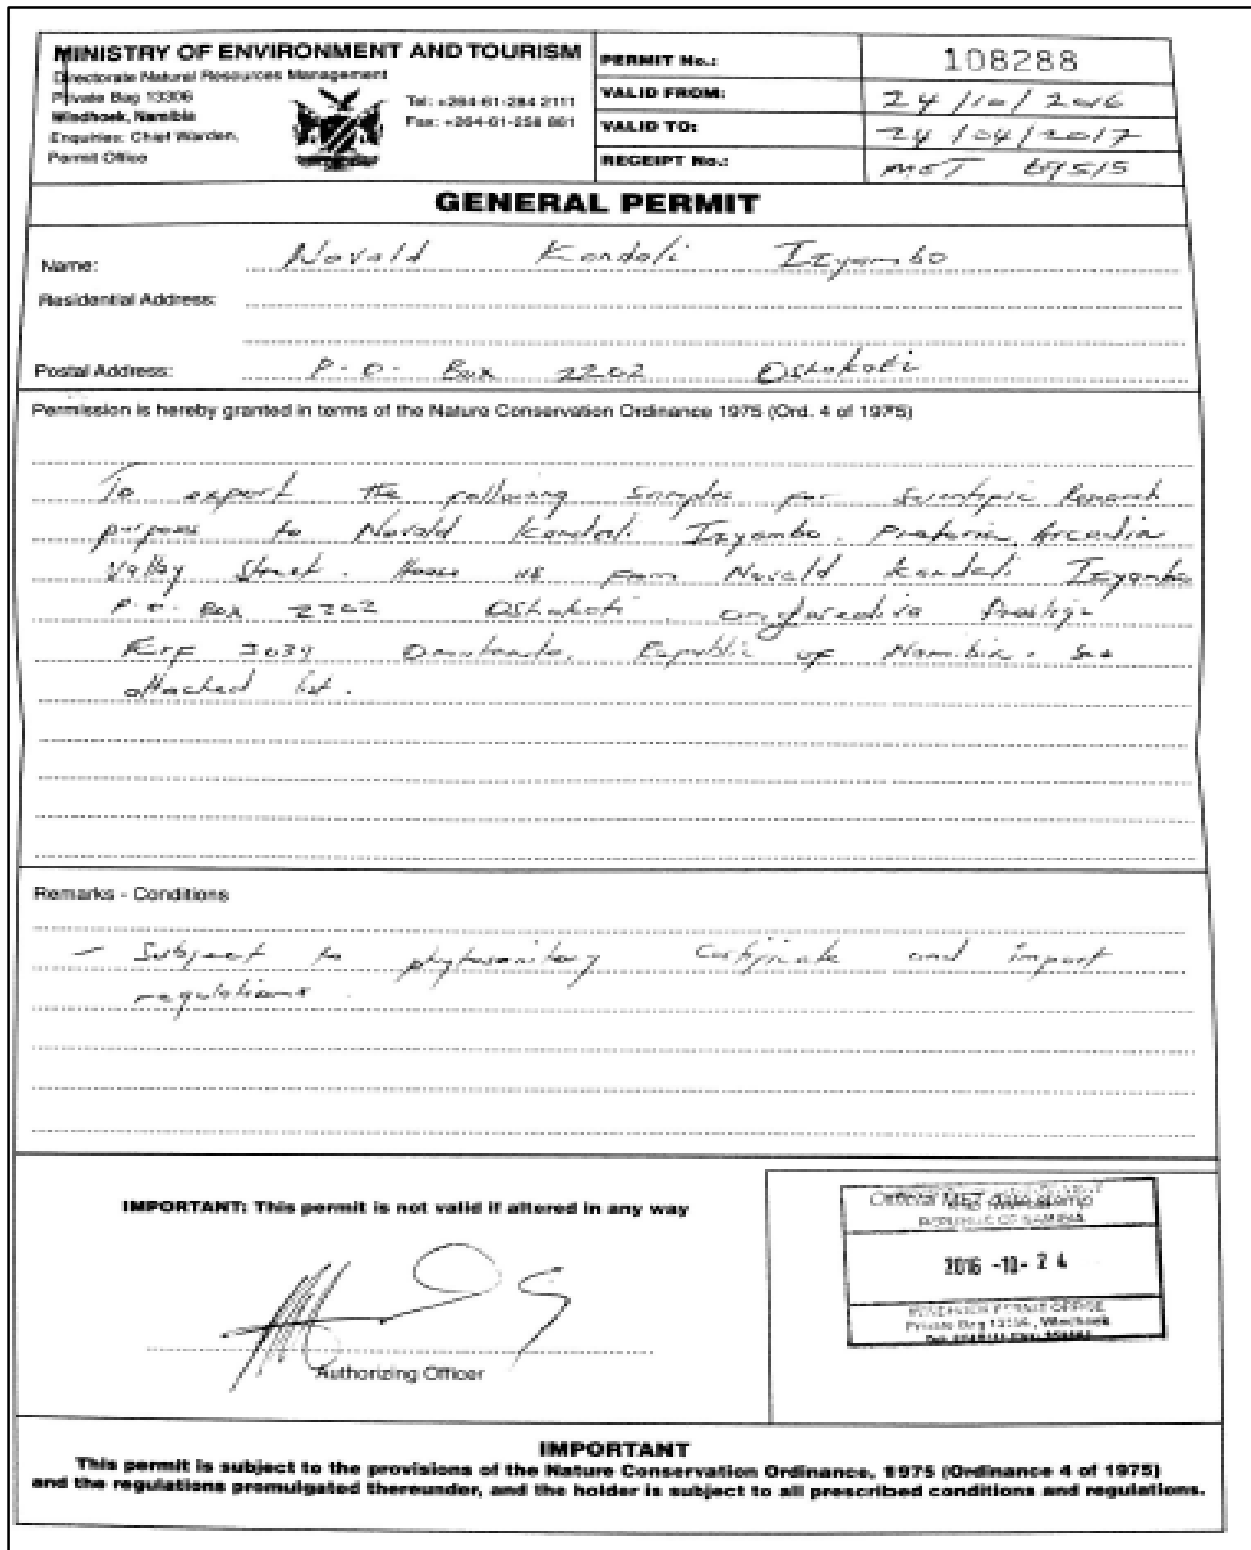 MINISTRY OF ENVIRONMENT AND TOURISM
Directorate Natural Resources Management
Private Bag 13306
Windhoek, Namibia
Enquiries: Chief Warden,
Permit Office
Tel: +264-61-284 2111
Fax: +264-61-258 861
PERMIT No.: 108288
VALID FROM: 24/10/2016
VALID TO: 24/04/2017
RECEIPT No.: MET
GENERAL PERMIT
Name: Kandali Iyambo
Residential Address:
Postal Address: P.O. Box 2202 Oshakati
Permission is hereby granted in terms of the Nature Conservation Ordinance 1975 (Ord. 4 of 1975)
To export the following samples for Scientific Research
purposes to Pretoria, Arcadia
Valley Street. House from
P.O. Box 2202 Oshakati
Erf Republic of Namibia. See
attached list.
Remarks - Conditions
- Subject to phytosanitary certificate and import
regulations.
IMPORTANT: This permit is not valid if altered in any way
Authorizing Officer
Official MET date stamp
REPUBLIC OF NAMIBIA
2016 -10- 24
PERMIT OFFICE
Private Bag 13306, Windhoek
IMPORTANT
This permit is subject to the provisions of the Nature Conservation Ordinance, 1975 (Ordinance 4 of 1975)
and the regulations promulgated thereunder, and the holder is subject to all prescribed conditions and regulations.